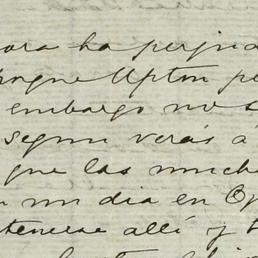 ora ha perjud
porque Upton pe
embargo no s
segun verás á
que las much
un dia en Op
tenerse allí y t